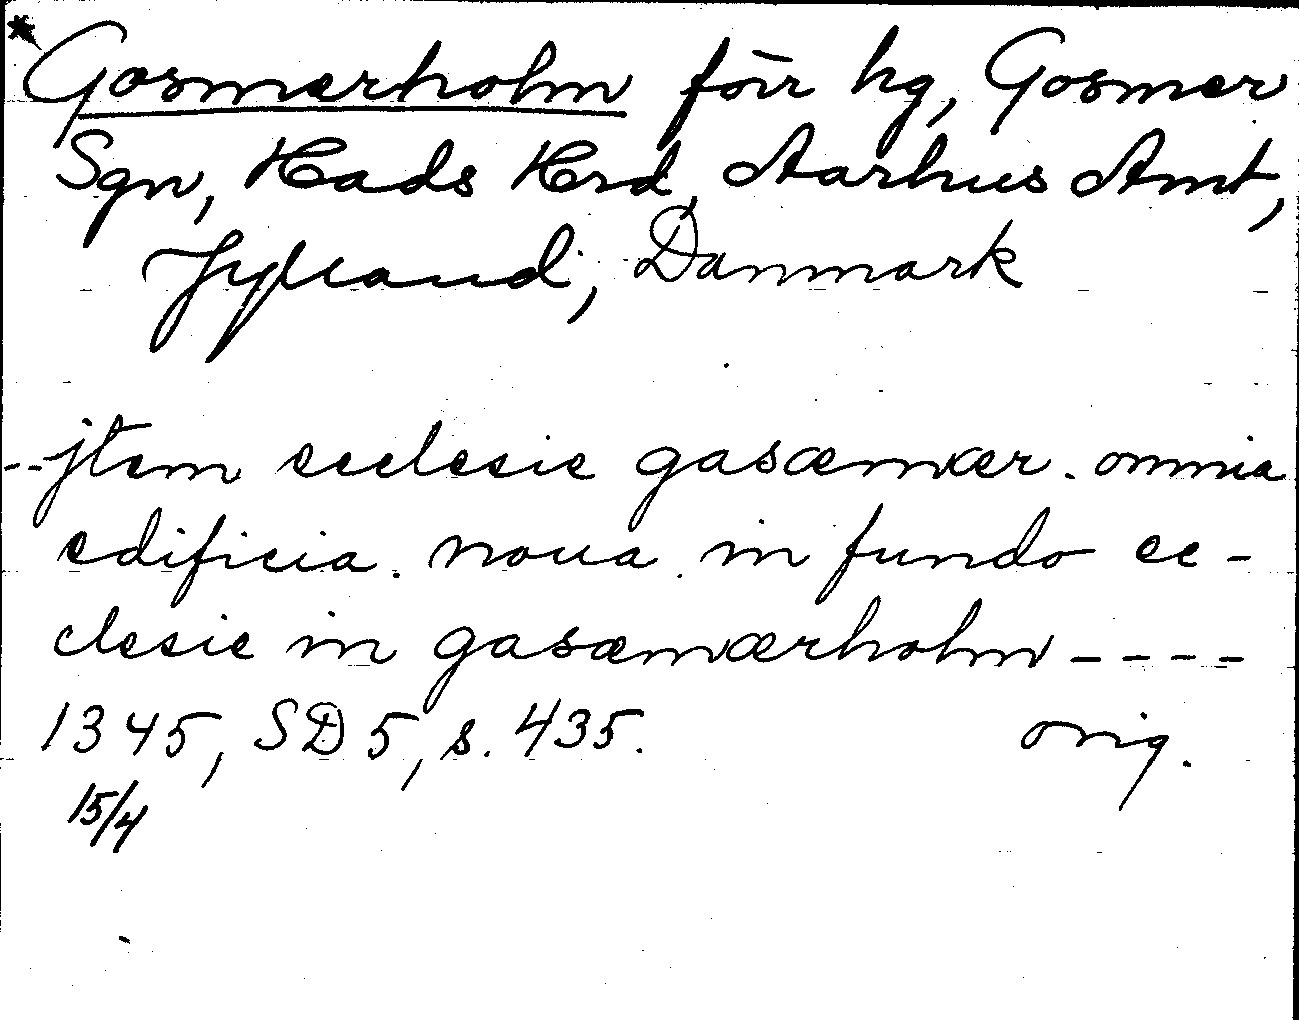 * Gosmerholm förr hg, Gosmer
Sgn, Hads Hrd, Aarhus Amt,
Jylland, Danmark
--jtem ecclesie gasæmær. omnia
edificia. noua. in fundo ec-
clesie in gasæmærholm ----
1345, SD 5, s. 435. orig.
15/4